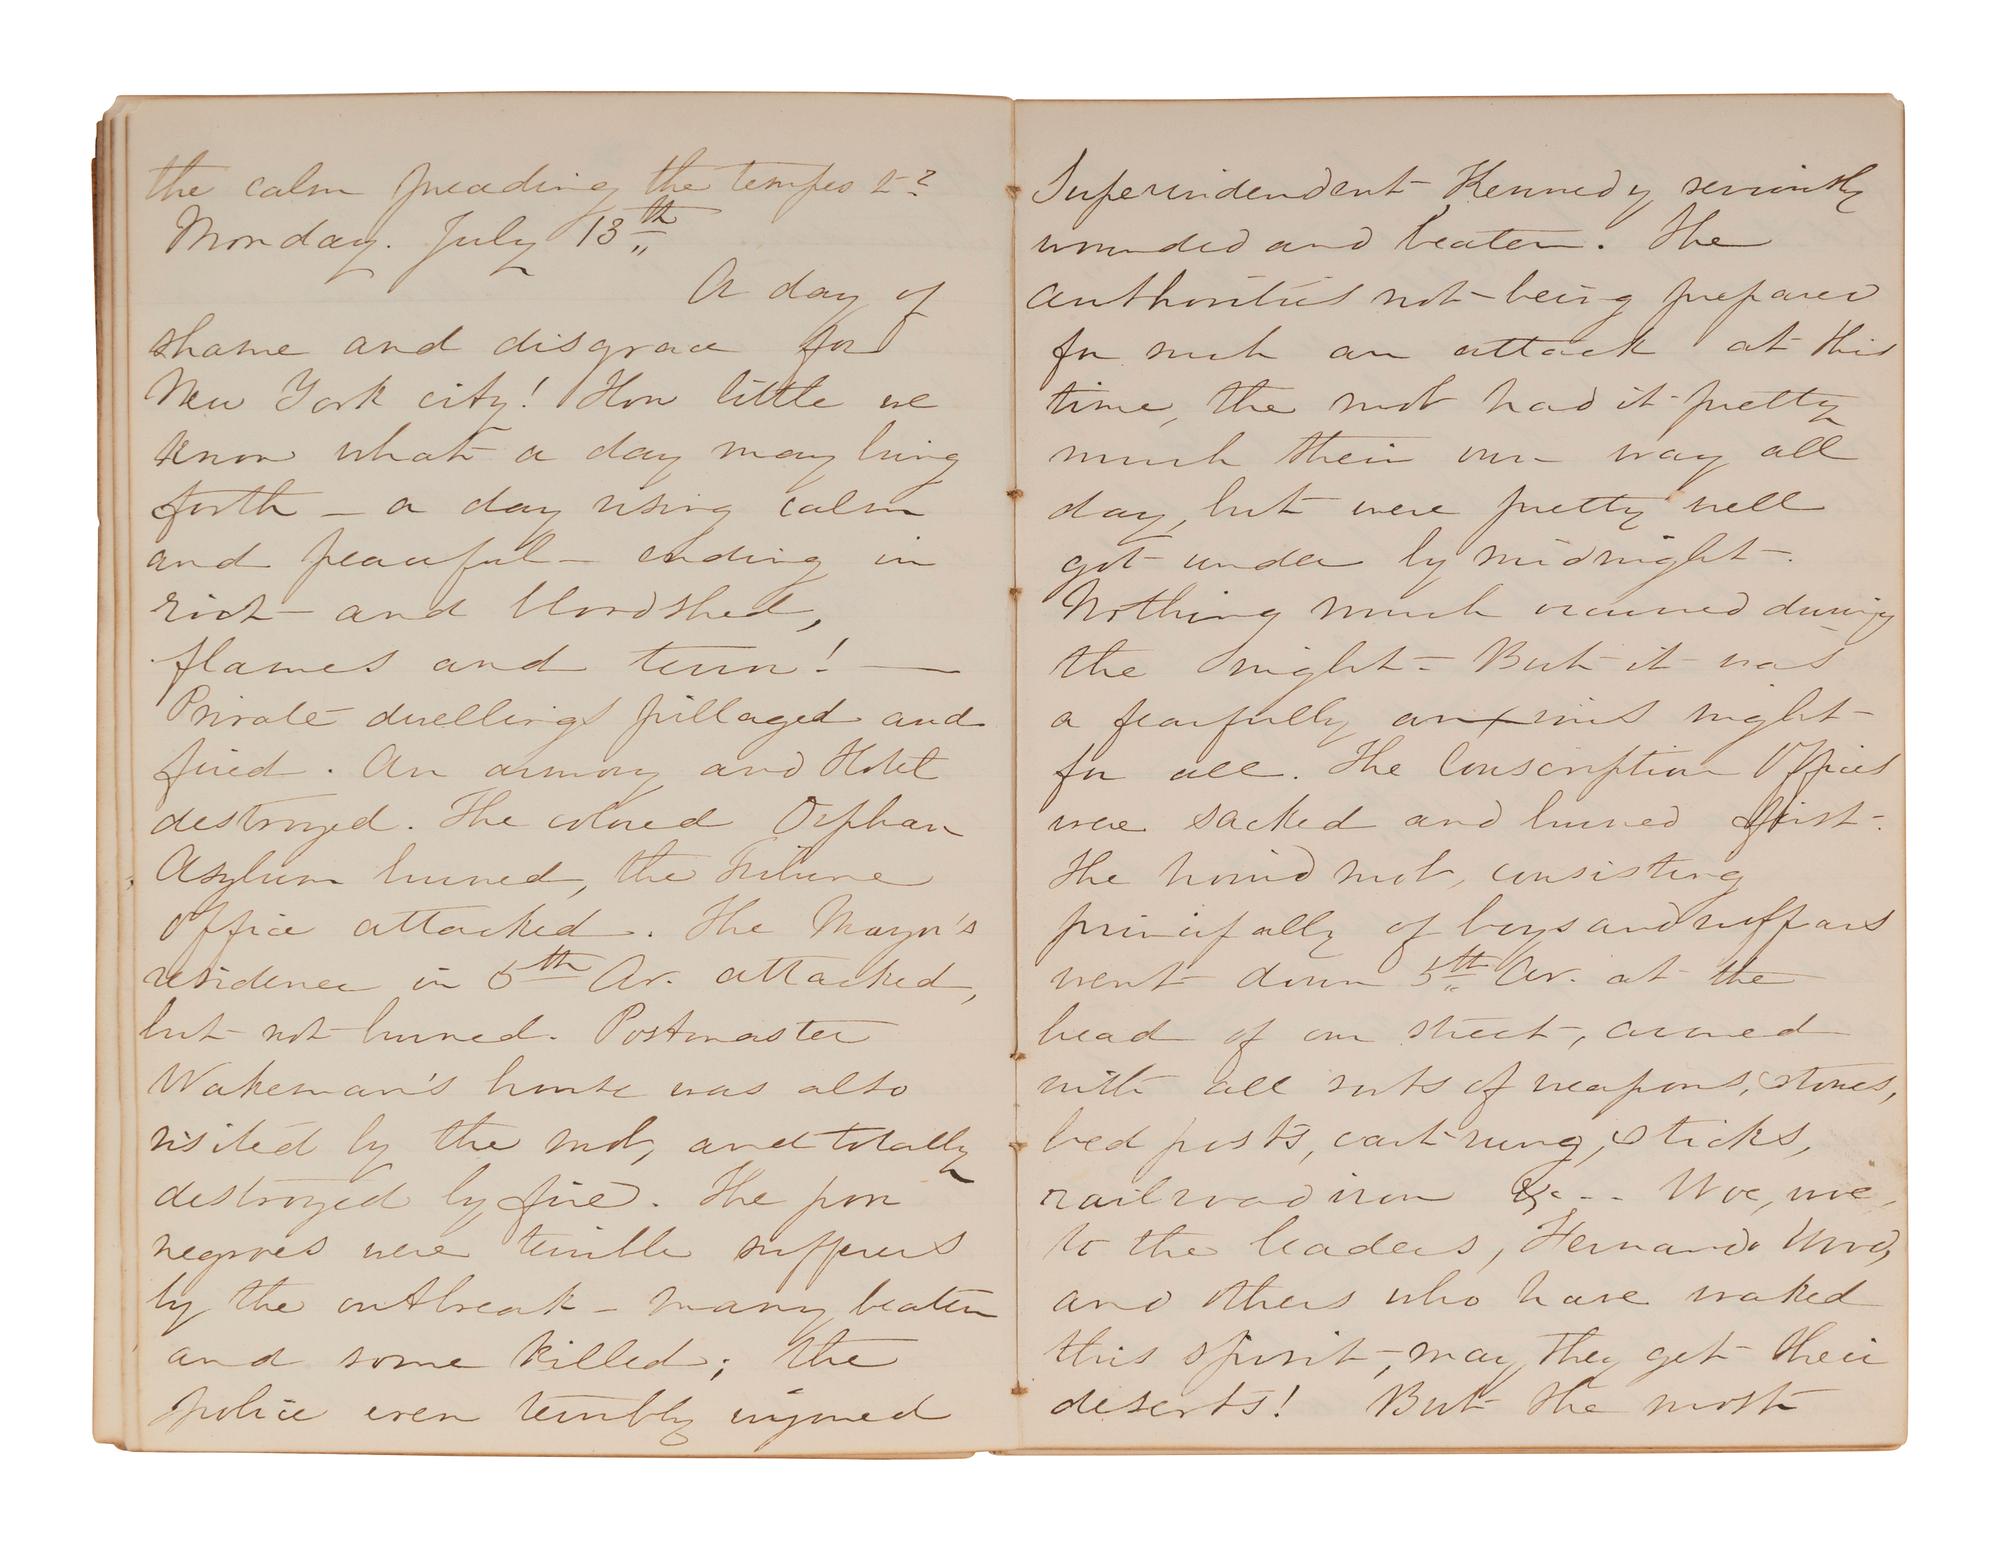 the calm preading the tempest?
Monday. July 13th
A day of
shame and disgrace for
New York city! How little we
know what a day may bring
forth – a day rising calm
and peaceful – ending in
riot – and bloodshed,
flames and terror! —
Private dwellings pillaged and
fired. An armory and Hotel
destroyed. The colored Orphan
Asylum burned, the Tribune
Office attacked. The Mayor's
residence in 5th Av. attacked,
but not burned. Postmaster
Wakeman's house was also
visited by the mob, and totally
destroyed by fire. The poor
negroes were terrible sufferers
by the outbreak – many beaten
and some killed; the
police even terribly injured
Superindendent Kennedy seriously
wounded and beaten. The
authorities not being prepared
for such an attack at this
time, the mob had it pretty
much their own way all
day, but were pretty well
got under by midnight.
Nothing much occurred during
the night – But it was
a fearfully anxious night
for all. The Conscription Offices
were sacked and burned first.
The horrid mob, consisting
principally of boys and ruffians
went down 5th Av. at the
head of our street, armed
with all sorts of weapons, stones,
bed posts, cart rung, sticks,
railroad iron &c-- Woe, woe
to the leaders, Fernando Wood,
and others who have waked
this spirit –, may they get their
deserts! But the most